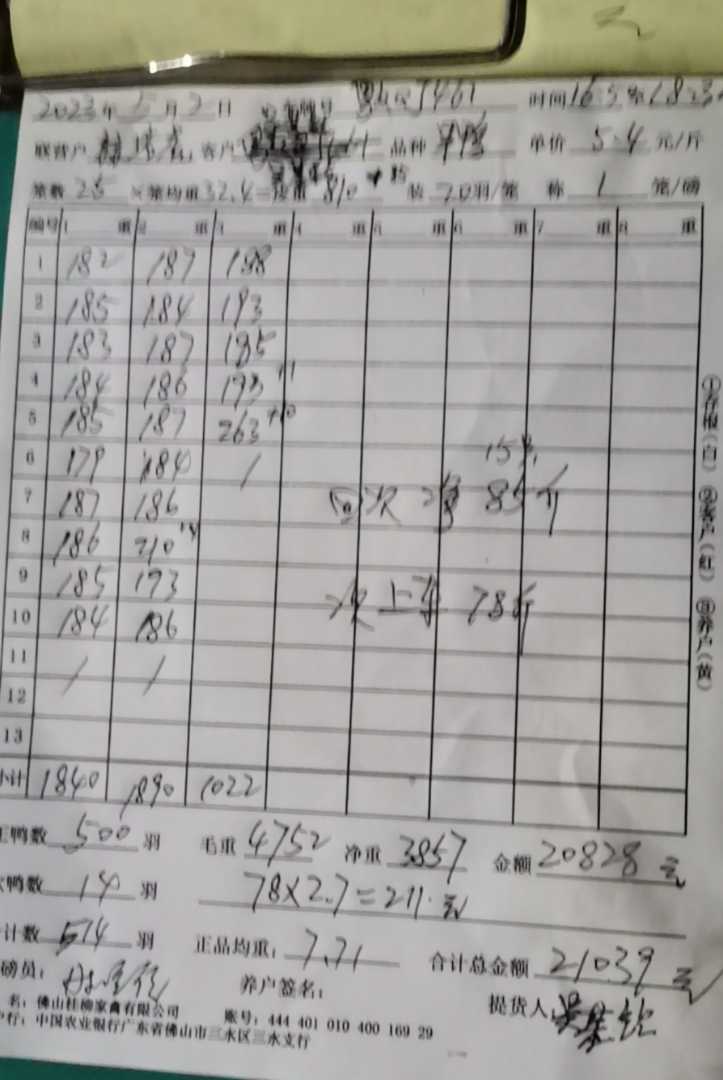 2023年5月2日 时间16:5至18:3
联营户 客户 品种 单价 5.4 元/斤
笼数 25 ×笼均重32.4=皮重 810 装 20羽/笼 称 1 笼/磅
编号 1 重 2 重 3 重 4 重 5 重 6 重 7 重 8 重
1 182 187 198
2 185 184 193
3 183 187 185
4 184 186 193
5 185 187 263
6 179 184 /
7 187 186
8 186 210
9 185 193
10 184 186
11 / /
12
13
小计 1840 1890 1022
次 85斤
次上车 78斤
正鸭数 500 羽 毛重 4752 净重 3857 金额 20828 元
鸭数 14 羽 78×2.7=211.元
计数 514 羽 正品均重: 7.71 合计总金额 21039 元
磅员: 养户签名: 提货人
名: 佛山桂柳家禽有限公司 账号: 444 401 010 400 169 29
户行: 中国农业银行广东省佛山市三水区三水支行
①存根(白) ②客户(红) ③养户(黄)